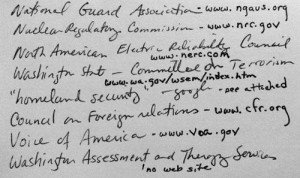 National Guard Association - www.ngaus.org
Nuclear Regulatory Commission - www.nrc.gov
North American Electric Reliability Council
www.nerc.com
Washington State - Committee on Terrorism
www.wa.gov/wsem/index.htm
"homeland security" - google - see attached
Council on Foreign relations - www.cfr.org
Voice of America - www.voa.gov
Washington Assessment and Therapy Services
no web site